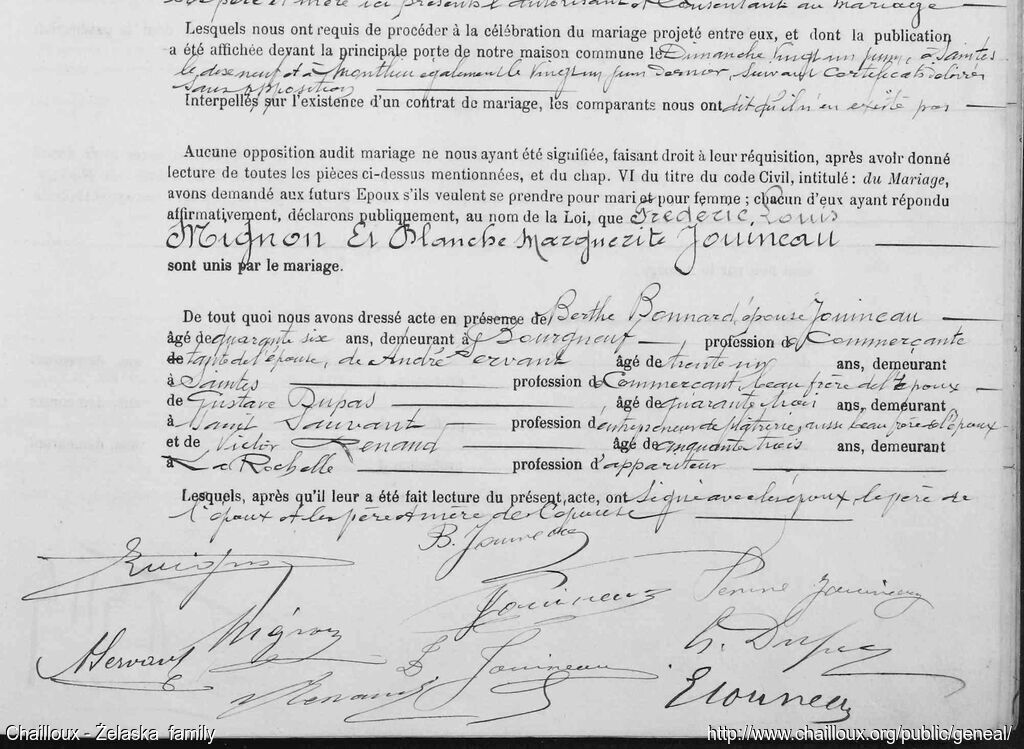 père et mère ici présents l'autorisant et consentant au mariage
Lesquels nous ont requis de procéder à la célébration du mariage projeté entre eux, et dont la publication
a été affichée devant la principale porte de notre maison commune le Dimanche vingt un juin, à Saintes
le dix neuf et à Montlieu également le vingt un juin dernier, suivant certificats délivrés
sans opposition
Interpellés sur l'existence d'un contrat de mariage, les comparants nous ont dit qu'il n'en existe pas
Aucune opposition audit mariage ne nous ayant été signifiée, faisant droit à leur réquisition, après avoir donné
lecture de toutes les pièces ci-dessus mentionnées, et du chap. VI du titre du code Civil, intitulé : du Mariage,
avons demandé aux futurs Epoux s'ils veulent se prendre pour mari et pour femme ; chacun d'eux ayant répondu
affirmativement, déclarons publiquement, au nom de la Loi, que Frédéric Louis
Mignon Et Blanche Marguerite Jouineau
sont unis par le mariage.
De tout quoi nous avons dressé acte en présence de Berthe Bonnard, épouse Jouineau
âgé de quarante six ans, demeurant à Bourgneuf, profession de Commerçante
de tante de l'épouse, de André Servant âgé de trente un ans, demeurant
à Saintes profession de Commerçant, beau frère de l'époux
de Gustave Dupas âgé de quarante trois ans, demeurant
à Saint Sauvant profession d'entrepreneur de plâtrerie, aussi beau frère de l'époux
et de Victor Renaud âgé de cinquante trois ans, demeurant
à La Rochelle profession d'appariteur
Lesquels, après qu'il leur a été fait lecture du présent acte, ont signé avec les époux, le père de
l'époux et les père et mère de l'épouse
B. Jouineau
Jouineau
Jouineau
Mignon
G. Dupas
AServant
Renaud
B Jouineau
E Jouineau
Chailloux - Żelaska family
http://www.chailloux.org/public/geneal/